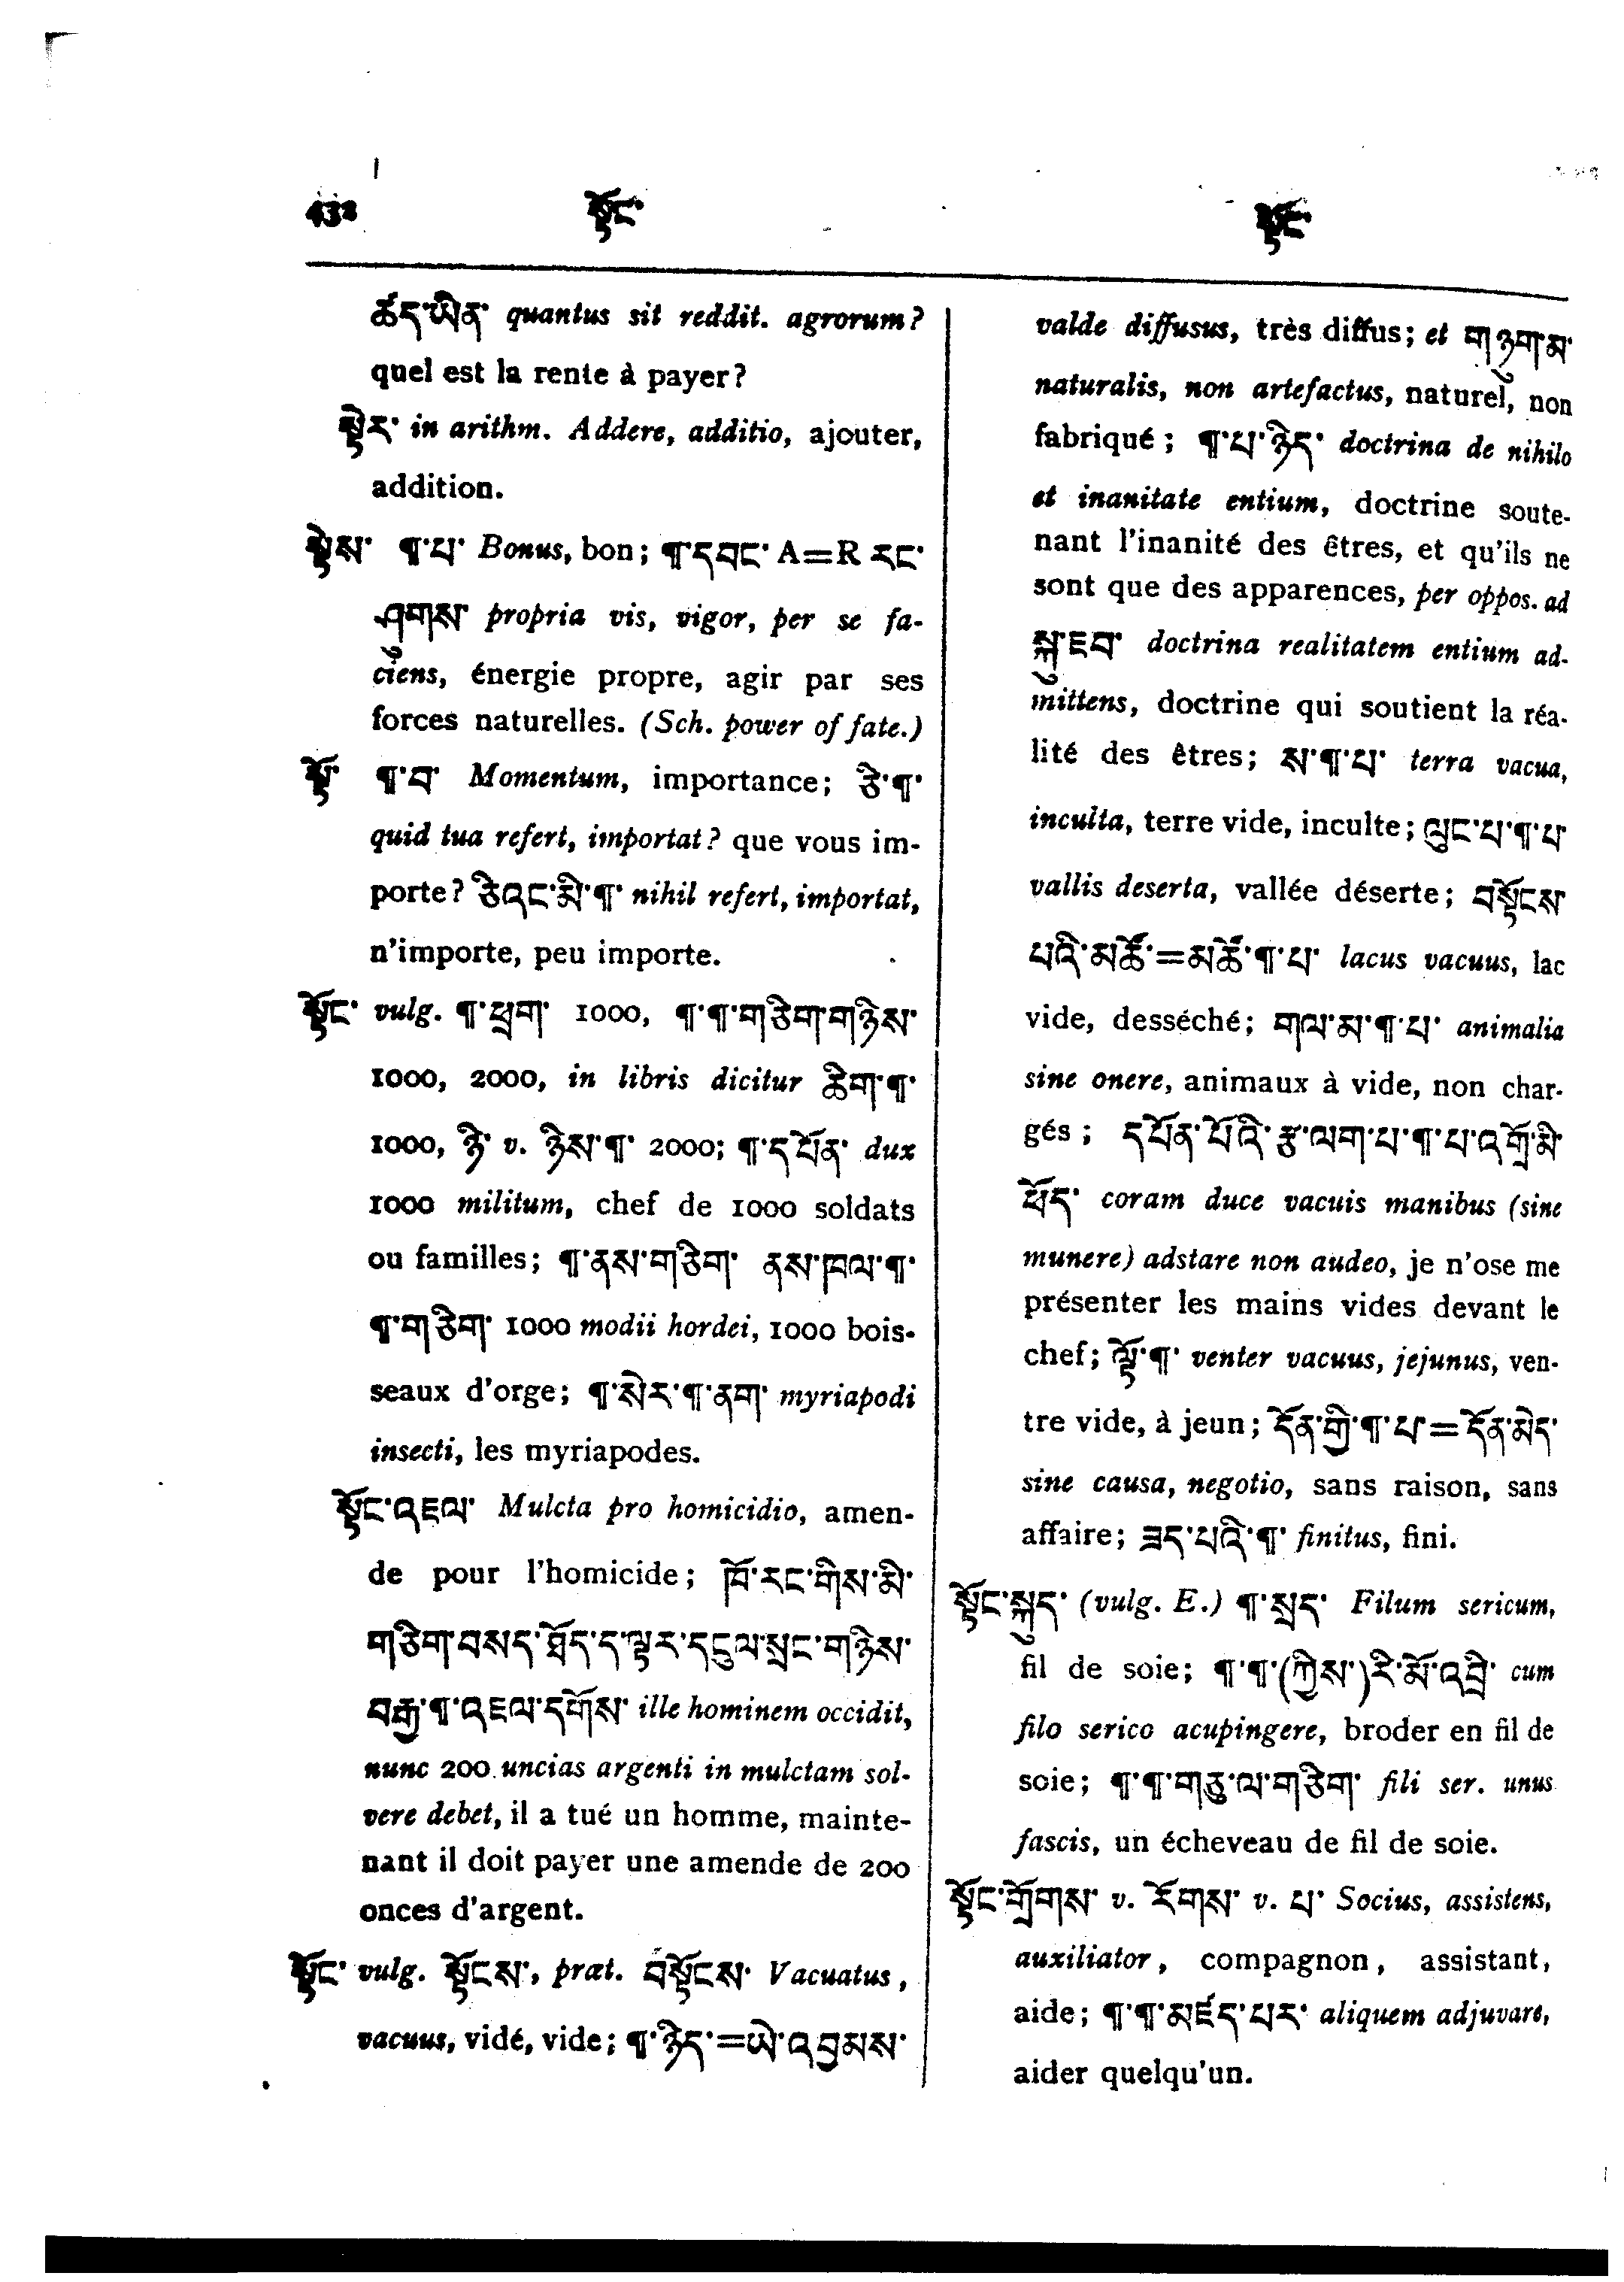 438
སྟོང་
སྟོང་
ཚད་ཡིན་ quantus sit reddit. agrorum?
quel est la rente à payer?
སྟེར་ in arithm. Addere, additio, ajouter,
addition.
སྟེས་ ༈་པ་ Bonus, bon; ༈་དབང་ A=R རང་
ཤུགས་ propria vis, vigor, per se fa-
ciens, énergie propre, agir par ses
forces naturelles. (Sch. power of fate.)
སྟོ་ ༈་བ་ Momentum, importance; ཅི་༈་
quid tua refert, importat? que vous im-
porte? ཅིའང་མི་༈་ nihil refert, importat,
n'importe, peu importe.
སྟོང་ vulg. ༈་ཕྲག་ 1000, ༈་༈་གཅིག་གཉིས་
1000, 2000, in libris dicitur ཆིག་༈་
1000, ཉི་ v. ཉིས་༈་ 2000; ༈་དཔོན་ dux
1000 militum, chef de 1000 soldats
ou familles; ༈་ནས་གཅིག་ ནས་ཁལ་༈་
༈་གཅིག་ 1000 modii hordei, 1000 bois-
seaux d'orge; ༈་སེར་༈་ནག་ myriapodi
insecti, les myriapodes.
སྟོང་འཇལ་ Mulcta pro homicidio, amen-
de pour l'homicide; ཁོ་རང་གིས་མི་
གཅིག་བསད་ཐོད་ད་ལྟར་དངུལ་སྲང་གཉིས་
བརྒྱ་༈་འཇལ་དགོས་ ille hominem occidit,
nunc 200 uncias argenti in mulctam sol-
vere debet, il a tué un homme, mainte-
nant il doit payer une amende de 200
onces d'argent.
སྟོང་ vulg. སྟོངས་, præt. བསྟོངས་ Vacuatus,
vacuus, vidé, vide; ༈་ཉིད་=ཡེ་འབྱམས་
valde diffusus, très diffus; et གཉུག་མ་
naturalis, non artefactus, naturel, non
fabriqué; ༈་པ་ཉིད་ doctrina de nihilo
et inanitate entium, doctrine soute-
nant l'inanité des êtres, et qu'ils ne
sont que des apparences, per oppos. ad
སྐུ་ཇབ་ doctrina realitatem entium ad-
mittens, doctrine qui soutient la réa-
lité des êtres; ས་༈་པ་ terra vacua,
inculta, terre vide, inculte; ལུང་པ་༈་པ་
vallis deserta, vallée déserte; བསྟོངས་
པའི་མཚོ་=མཚོ་༈་པ་ lacus vacuus, lac
vide, desséché; གལ་མ་༈་པ་ animalia
sine onere, animaux à vide, non char-
gés; དཔོན་པོའི་རྩ་ལག་པ་༈་པ་འགྲོ་མི་
ཕོད་ coram duce vacuis manibus (sine
munere) adstare non audeo, je n'ose me
présenter les mains vides devant le
chef; ལྟོ་༈་ venter vacuus, jejunus, ven-
tre vide, à jeun; དོན་གྱི་༈་པ་=དོན་མེད་
sine causa, negotio, sans raison, sans
affaire; ཟད་པའི་༈་ finitus, fini.
སྟོང་སྐུད་ (vulg. E.) ༈་སྲད་ Filum sericum,
fil de soie; ༈་༈་(ཀྱིས་)རི་མོ་འབྲི་ cum
filo serico acupingere, broder en fil de
soie; ༈་༈་གཅུ་ལ་གཅིག་ fili ser. unus
fascis, un écheveau de fil de soie.
སྟོང་གྲོགས་ v. རོགས་ v. པ་ Socius, assistens,
auxiliator, compagnon, assistant,
aide; ༈་༈་མཛད་པར་ aliquem adjuvare,
aider quelqu'un.